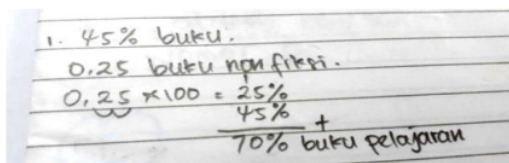 1. 45% buku.
0.25 buku non fiksi.
0,25 × 100 = 25%
45%
+
70% buku pelajaran